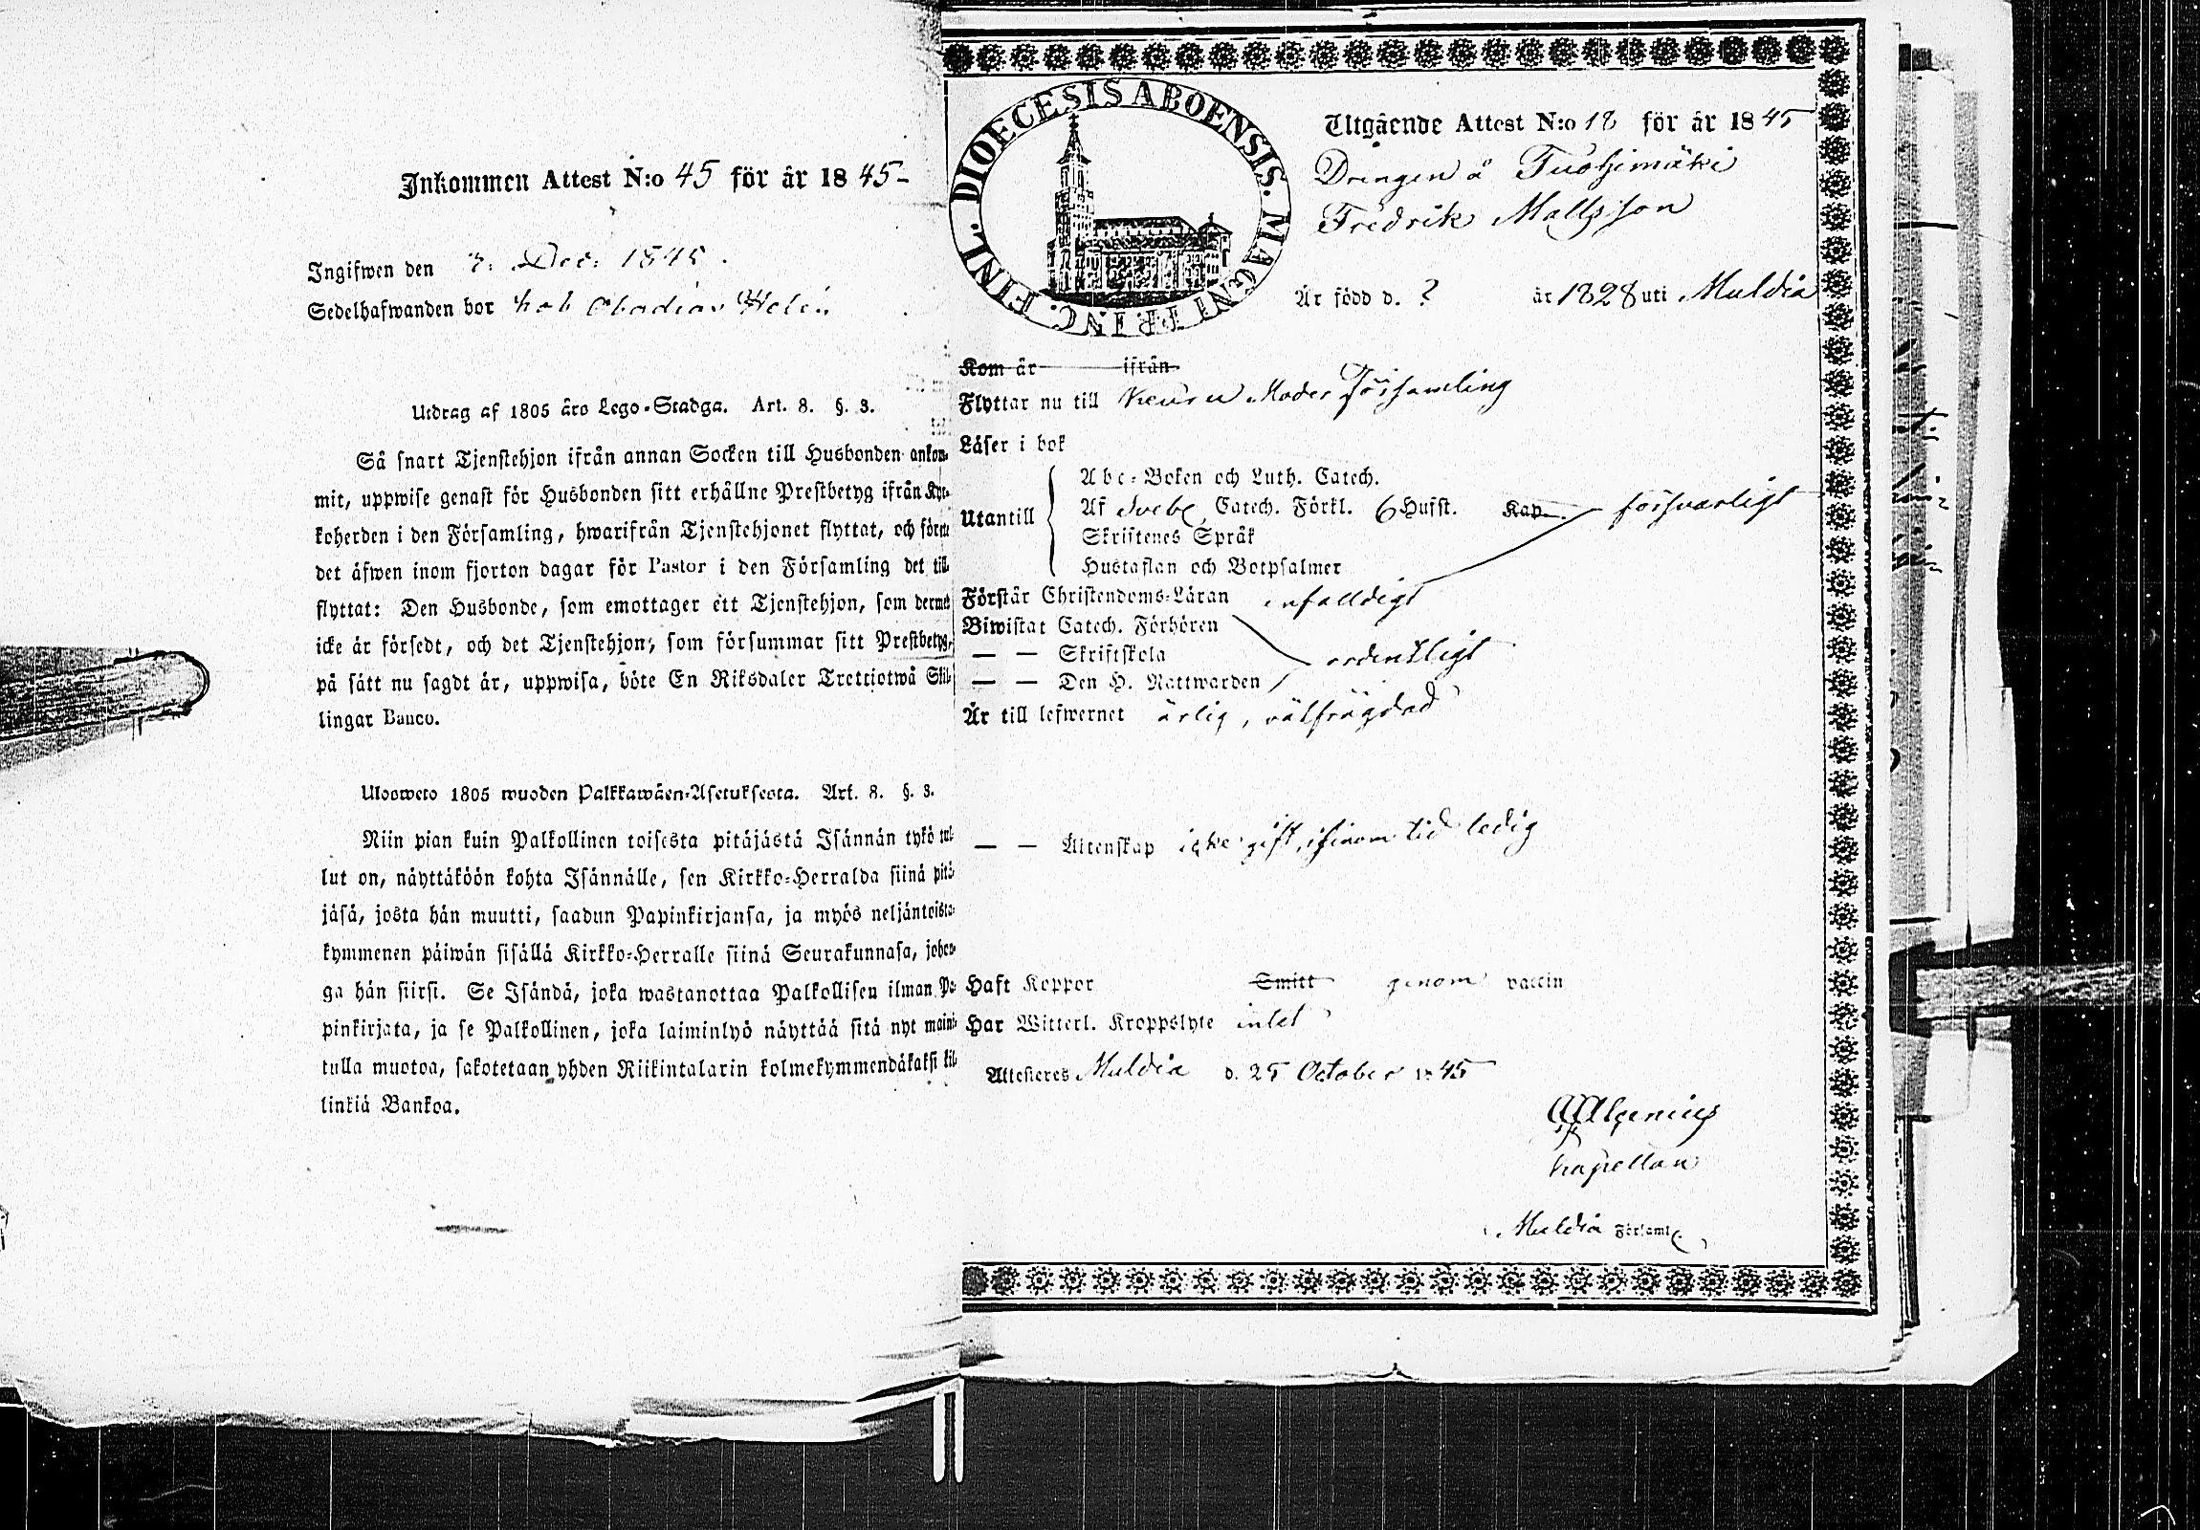 Inkommen Attest N:o 45 för år 1845
Ingifwen den 7. Dec: 1845.
Sedelhafwanden bor hos Obadias Helén
Utdrag af 1805 års Lego-Stadga. Art. 8. §. 3.
Så snart Tjenstehjon ifrån annan Socken till Husbonden ankom-
mit, uppwise genast för Husbonden sitt erhållne Prestbetyg ifrån Kyr-
koherden i den Församling, hwarifrån Tjenstehjonet flyttat, och förete
det äfwen inom fjorton dagar för Pastor i den Församling det till-
flyttat: Den Husbonde, som emottager ett Tjenstehjon, som dermed
icke är försedt, och det Tjenstehjon, som försummar sitt Prestbetyg,
på sätt nu sagdt är, uppwisa, böte En Riksdaler Trettiotwå Skil-
lingar Banco.
Ulosweto 1805 wuoden Palkkawäen-Asetuksesta. Art. 8. §. 3.
Niin pian kuin Palkollinen toisesta pitäjästä Isännän tykö tul-
lut on, näyttäköön kohta Isännälle, sen Kirkko-Herralda siinä pitä-
jäsä, josta hän muutti, saadun Papinkirjansa, ja myös neljäntoista-
kymmenen päiwän sisällä Kirkko-Herralle siinä Seurakunnasa, johon-
ga hän siirsi. Se Isändä, joka wastanottaa Palkollisen ilman Pa-
pinkirjata, ja se Palkollinen, joka laiminlyö näyttää sitä nyt maini-
tulla muotoa, sakotetaan yhden Riikintalarin kolmekymmendäkaksi kil-
linkiä Bankoa.
DIOECESIS ABOENSIS. MAGNI PRINC. FINL.
Utgående Attest N:o 18 för år 1845
Drengen å Tuohimäki
Fredrik Mattsson
Är född d. ? år 1828 uti Muldia
Kom år ifrån
Flyttar nu till Keuru Moder Församling
Läser i bok
Abc-Boken och Luth. Catech.
Utantill Af Svebe Catech. Förkl. 6 Hufst. Kap. försvarligt
Skriftenes Språk
Hustaflan och Botpsalmer
Förstår Christendoms-Läran enfalldigt
Biwistat Catech. Förhören
— — Skriftskola ordentligt
— — Den H. Nattwarden
Är till lefwernet ärlig, välfrägdad
— — Äktenskap icke gift, ifrån tid ledig
Haft Koppor Smitt genom vaccin
Har Witterl. Kroppslyte intet
Attesteres Muldia d. 25 October 1845
A Algenius
Kapellan
i Muldia Församl.